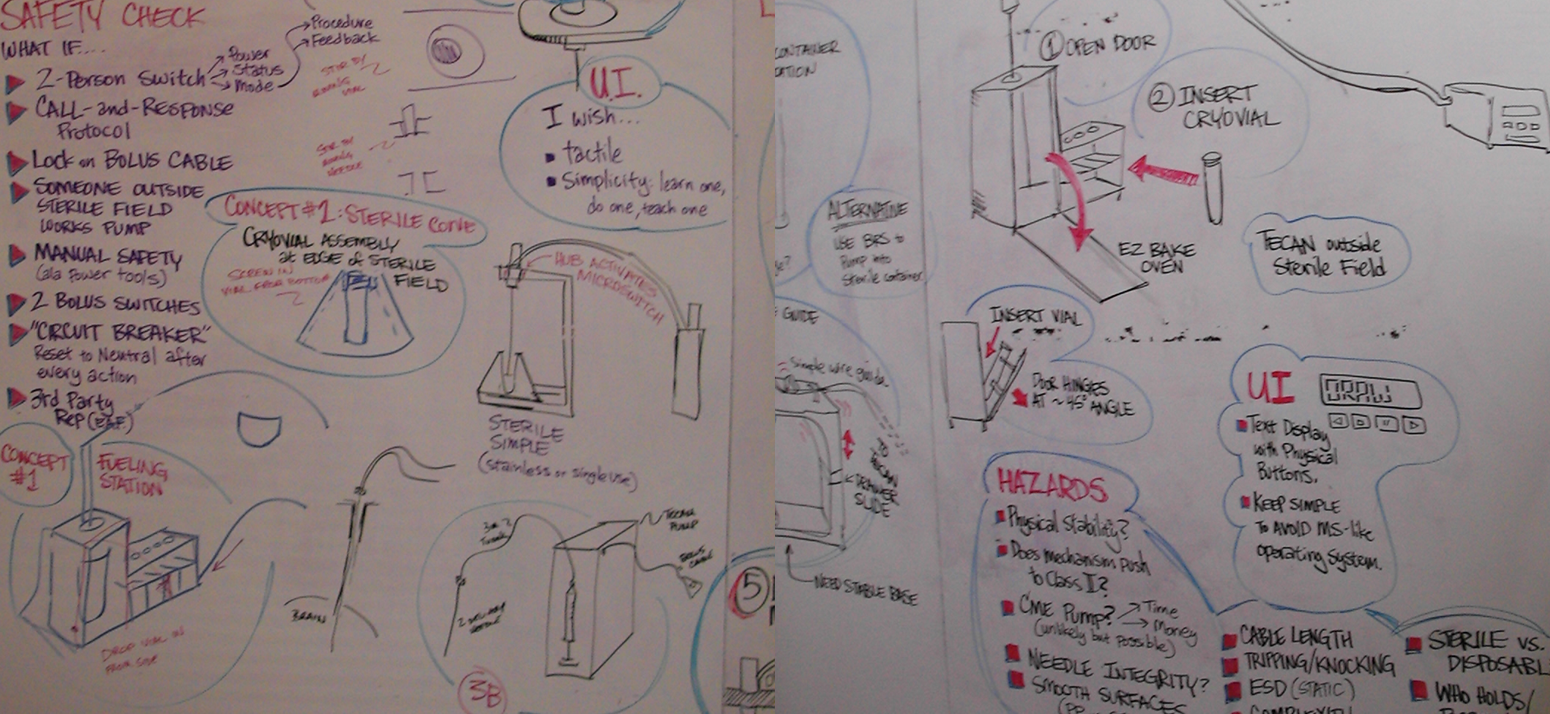 SAFETY CHECK
WHAT IF....
2-Person Switch
Power
Status
Mode
Procedure
Feedback
CALL-and-RESPONSE
Protocol
Lock on BOLUS CABLE
SOMEONE OUTSIDE
STERILE FIELD
WORKS PUMP
MANUAL SAFETY
(ala Power tools)
2 BOLUS SWITCHES
"CIRCUIT BREAKER"
Reset to Neutral after
every action
3rd Party
Rep
STIR BY
VIAL
STIR BY
NEEDLE
U.I.
I wish...
tactile
Simplicity: learn one,
do one, teach one
CONCEPT #2: STERILE CONE
CRYOVIAL ASSEMBLY
at EDGE of STERILE
FIELD
SCREW IN
VIAL FROM BOTTOM
HUB ACTIVATES
MICROSWITCH
STERILE
SIMPLE
(stainless or single use)
CONCEPT
#1
FUELING
STATION
DROP VIAL IN
FROM SIDE
BRAIN
TECAN
PUMP
BOLUS
CABLE
3B
5
CONTAINER
ALTERNATIVE
USE BRS to
Pump into
Sterile container
GUIDE
Simple wire guide
TO
TECAN
DRAWER
SLIDE
NEED STABLE BASE
1 OPEN DOOR
2 INSERT
CRYOVIAL
EZ BAKE
OVEN
TECAN outside
Sterile Field
INSERT VIAL
DOOR HINGES
AT ~45° ANGLE
UI
DRAW
Text Display
with Physical
Buttons.
KEEP SIMPLE
TO AVOID MS-like
operating system.
HAZARDS
Physical Stability?
Does mechanism push
to Class II?
CME Pump?
Time
Money
(unlikely but possible)
NEEDLE INTEGRITY?
SMOOTH SURFACES
CABLE LENGTH
TRIPPING/KNOCKING
ESD (STATIC)
COMPLEXITY
STERILE VS.
DISPOSABL
WHO HOLDS/